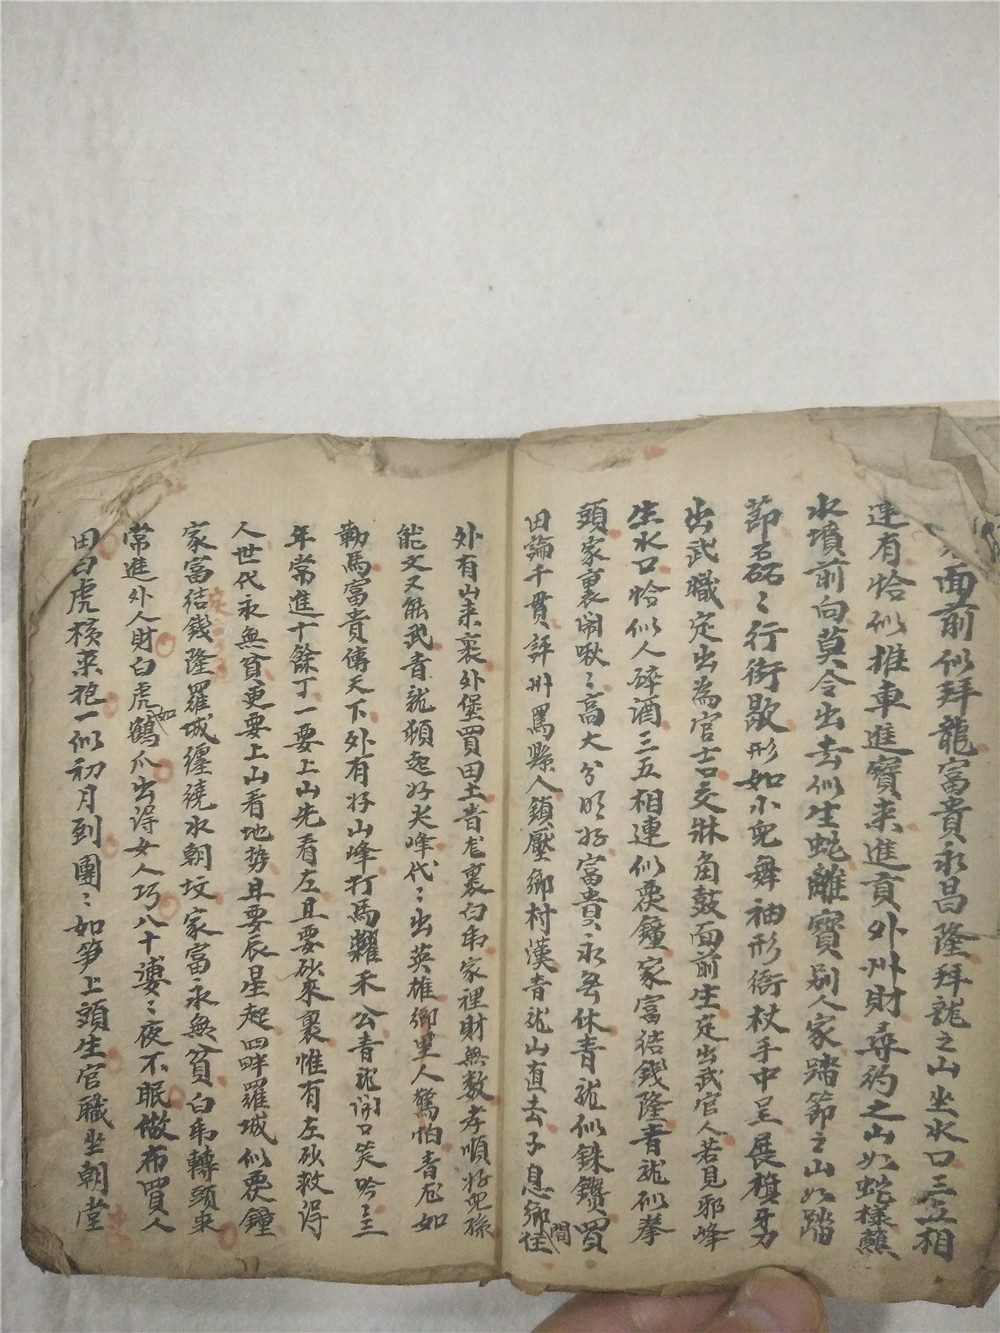 面前似拜龍富貴永昌隆拜龍之山坐水口三五相
連有恰似推車進寶來進貢外州財尋的之山如蛇樣蘸
水墳前向莫令出去似生蛇離寶別人家踏節之山如踏
節磊磊々行街歇形如小兒舞袖形衙杖手中呈展旗牙刀
出武職定出為官士口交牀角鼓面前生定出武官人若見邪峰
生水口恰似人碎酒三五相連似覆鐘家富結錢隆青龍似拳
頭家裏鬧啾々高大分明好富貴永無休青龍似銖鑽買
田論千貫評州罵縣人鎮壓鄉村漢青龍山直去子息鄉間住
外有山來裏外堡買田土青龙裏白虎家裡財無数孝順好兒孫
能文又能武青龍頻起好尖峰代々出英雄鄉里人驚怕青龙如
勒馬富貴傳天下外有好山峰打馬糶禾公青龍開口笑吟々主
年常進十餘丁一要上山先看左且要砂來裹惟有左砂救得
人世代永無貧更要上山看地势且要辰星起四畔羅城似覆鐘
家富結錢隆羅城纏繞水朝坟家富永無貧白虎轉頭來
常進外人財白虎如鶴爪出得女人巧八十婆々夜不眠做布買人
田白虎核來抱一似初月到團々如笋上頭生官職坐朝堂